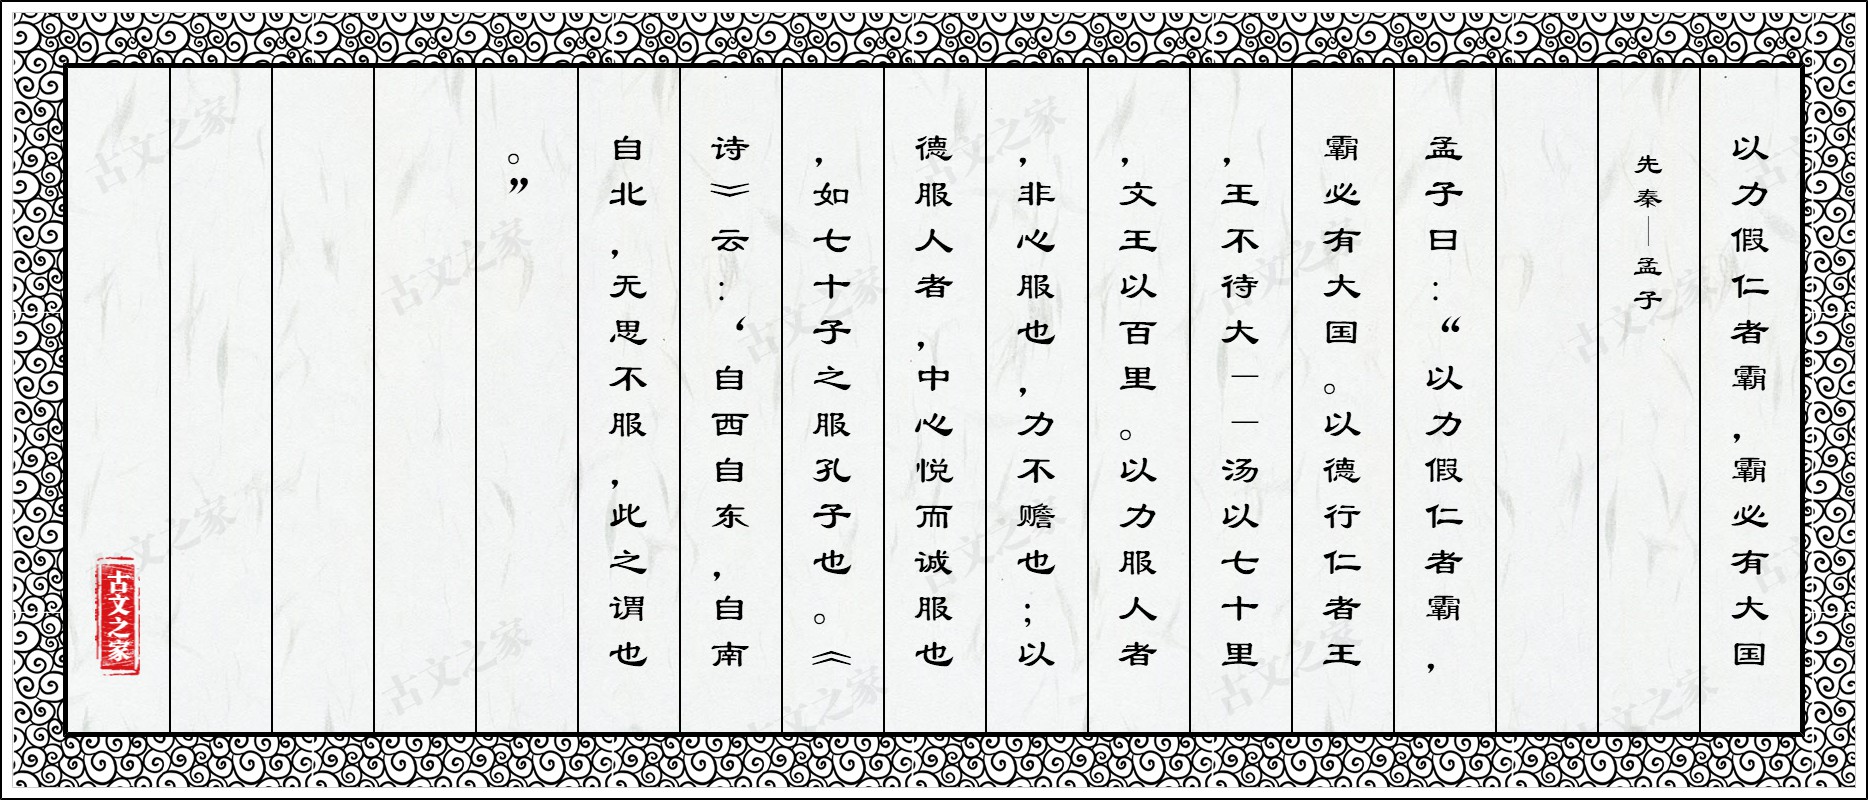 以力假仁者霸，霸必有大国
先秦—孟子
孟子曰：“以力假仁者霸，
霸必有大国。以德行仁者王
，王不待大——汤以七十里
，文王以百里。以力服人者
，非心服也，力不赡也；以
德服人者，中心悦而诚服也
，如七十子之服孔子也。《
诗》云：‘自西自东，自南
自北，无思不服，此之谓也
。”
古文之家